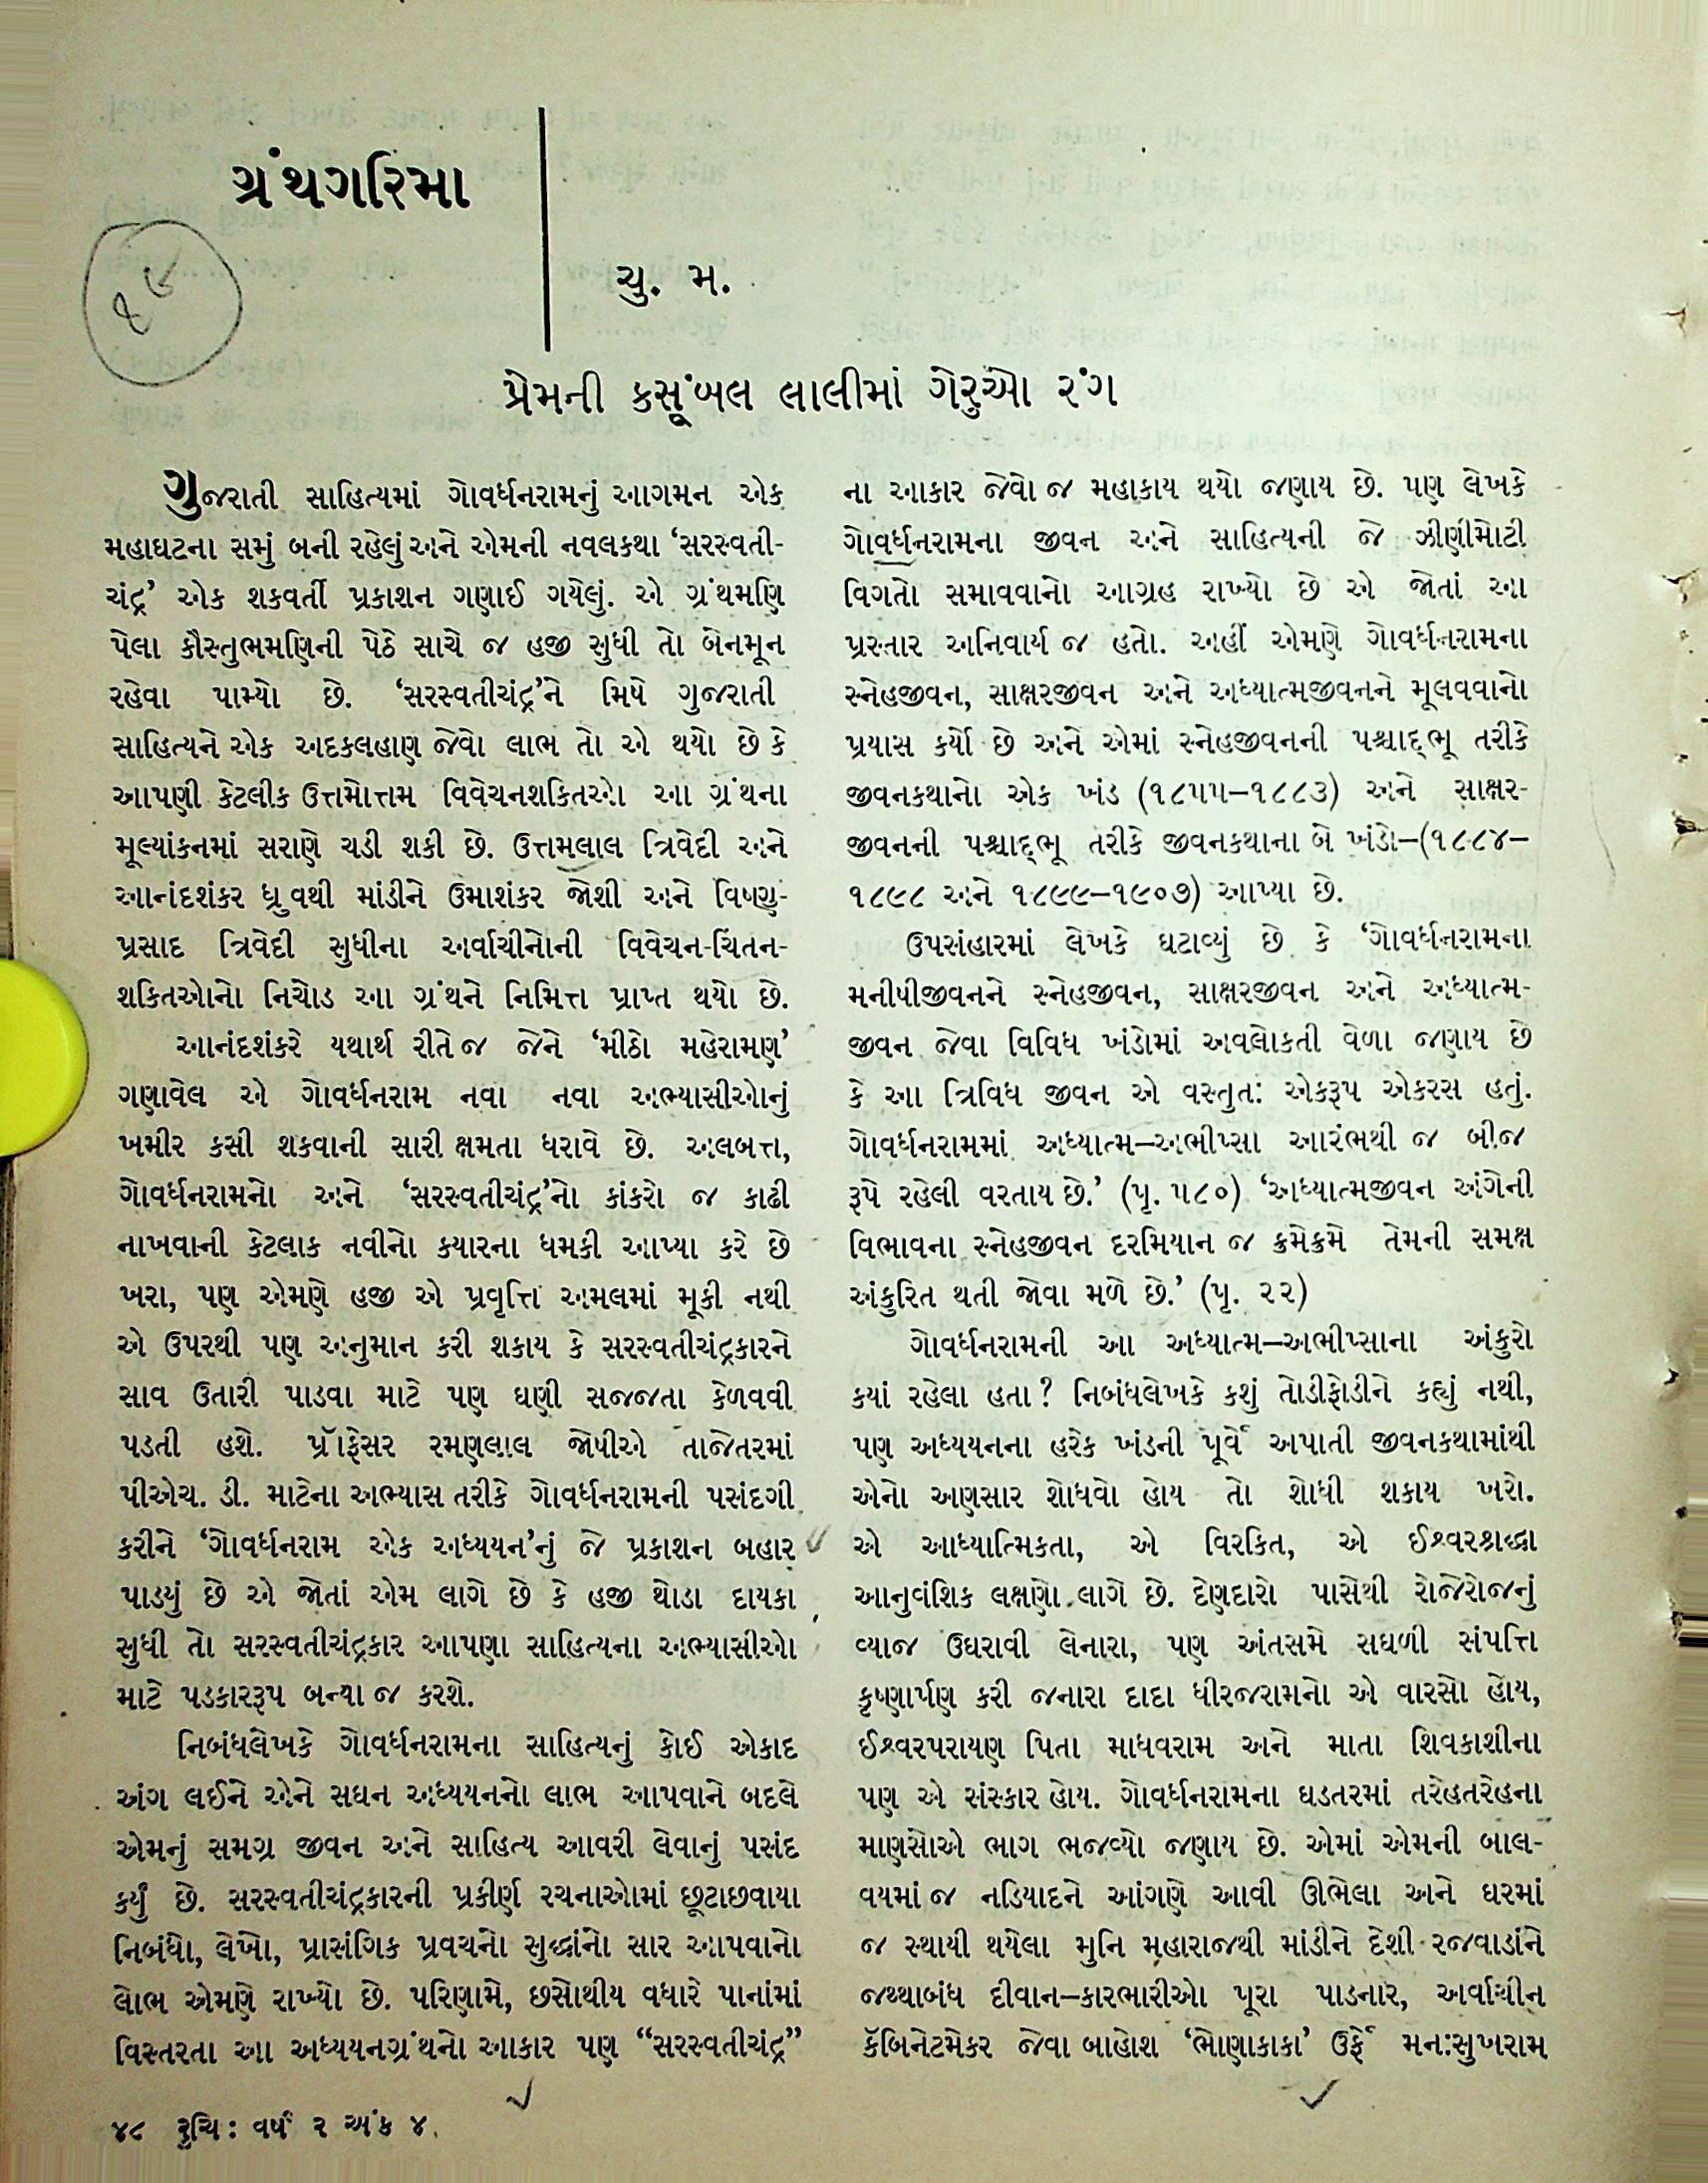 ગ્રંથગરિમા
૧૯
ચુ. મ.
પ્રેમની કસૂંબલ લાલીમાં ગેરુઓ રંગ
ગુજરાતી સાહિત્યમાં ગોવર્ધનરામનું આગમન એક
મહાઘટના સમું બની રહેલું અને એમની નવલકથા ‘સરસ્વતી-
ચંદ્ર’ એક શકવર્તી પ્રકાશન ગણાઈ ગયેલું. એ ગ્રંથમણિ
પેલા કૌસ્તુભમણિની પેઠે સાચે જ હજી સુધી તો બેનમૂન
રહેવા પામ્યો છે. ‘સરસ્વતીચંદ્ર’ને મિષે ગુજરાતી
સાહિત્યને એક અદકલહાણ જેવો લાભ તો એ થયો છે કે
આપણી કેટલીક ઉત્તમોત્તમ વિવેચનશકિતઓ આ ગ્રંથના
મૂલ્યાંકનમાં સરાણે ચડી શકી છે. ઉત્તમલાલ ત્રિવેદી અને
આનંદશંકર ધ્રુવથી માંડીને ઉમાશંકર જોશી અને વિષ્ણુ-
પ્રસાદ ત્રિવેદી સુધીના અર્વાચીનોની વિવેચન-ચિંતન-
શકિતઓનો નિચોડ આ ગ્રંથને નિમિત્ત પ્રાપ્ત થયો છે.
આનંદશંકરે યથાર્થ રીતે જ જેને ‘મીઠો મહેરામણ’
ગણાવેલ એ ગોવર્ધનરામ નવા નવા અભ્યાસીઓનું
ખમીર કસી શકવાની સારી ક્ષમતા ધરાવે છે. અલબત્ત,
ગોવર્ધનરામનો અને ‘સરસ્વતીચંદ્ર’નો કાંકરો જ કાઢી
નાખવાની કેટલાક નવીનો કયારના ધમકી આપ્યા કરે છે
ખરા, પણ એમણે હજી એ પ્રવૃત્તિ અમલમાં મૂકી નથી
એ ઉપરથી પણ અનુમાન કરી શકાય કે સરસ્વતીચંદ્રકારને
સાવ ઉતારી પાડવા માટે પણ ઘણી સજ્જતા કેળવવી
પડતી હશે. પ્રૉફેસર રમણલાલ જોષીએ તાજેતરમાં
પીએચ. ડી. માટેના અભ્યાસ તરીકે ગોવર્ધનરામની પસંદગી
કરીને ‘ગોવર્ધનરામ એક અધ્યયન’નું જે પ્રકાશન બહાર
પાડયું છે એ જોતાં એમ લાગે છે કે હજી થોડા દાયકા
સુધી તો સરસ્વતીચંદ્રકાર આપણા સાહિત્યના અભ્યાસીઓ
માટે પડકારરૂપ બન્યા જ કરશે.
નિબંધલેખકે ગોવર્ધનરામના સાહિત્યનું કોઈ એકાદ
અંગ લઈને એને સઘન અધ્યયનનો લાભ આપવાને બદલે
એમનું સમગ્ર જીવન અને સાહિત્ય આવરી લેવાનું પસંદ
કર્યું છે. સરસ્વતીચંદ્રકારની પ્રકીર્ણ રચનાઓમાં છૂટાછવાયા
નિબંધો, લેખો, પ્રાસંગિક પ્રવચનો સુદ્ધાંનો સાર આપવાનો
લોભ એમણે રાખ્યો છે. પરિણામે, છસોથીય વધારે પાનાંમાં
વિસ્તરતા આ અધ્યયનગ્રંથનો આકાર પણ “સરસ્વતીચંદ્ર”
ના આકાર જેવો જ મહાકાય થયો જણાય છે. પણ લેખકે
ગોવર્ધનરામના જીવન અને સાહિત્યની જે ઝીણીમોટી
વિગતો સમાવવાનો આગ્રહ રાખ્યો છે એ જોતાં આ
પ્રસ્તાર અનિવાર્ય જ હતો. અહીં એમણે ગોવર્ધનરામના
સ્નેહજીવન, સાક્ષરજીવન અને અધ્યાત્મજીવનને મૂલવવાનો
પ્રયાસ કર્યો છે અને એમાં સ્નેહજીવનની પશ્ચાદ્ભૂ તરીકે
જીવનકથાનો એક ખંડ (૧૮૫૫–૧૮૮૩) અને સાક્ષર-
જીવનની પશ્ચાદ્ભૂ તરીકે જીવનકથાના બે ખંડો–(૧૮૮૪–
૧૮૯૮ અને ૧૮૯૯–૧૯૦૭) આપ્યા છે.
ઉપસંહારમાં લેખકે ઘટાવ્યું છે કે ‘ગોવર્ધનરામના
મનીષીજીવનને સ્નેહજીવન, સાક્ષરજીવન અને અધ્યાત્મ-
જીવન જેવા વિવિધ ખંડોમાં અવલોકતી વેળા જણાય છે
કે આ ત્રિવિધ જીવન એ વસ્તુતઃ એકરૂપ એકરસ હતું.
ગોવર્ધનરામમાં અધ્યાત્મ–અભીપ્સા આરંભથી જ બીજ
રૂપે રહેલી વરતાય છે.’ (પૃ. ૫૮૦) ‘અધ્યાત્મજીવન અંગેની
વિભાવના સ્નેહજીવન દરમિયાન જ ક્રમેક્રમે તેમની સમક્ષ
અંકુરિત થતી જોવા મળે છે.’ (પૃ. ૨૨)
ગોવર્ધનરામની આ અધ્યાત્મ–અભીપ્સાના અંકુરો
કયાં રહેલા હતા? નિબંધલેખકે કશું તોડીફોડીને કહ્યું નથી,
પણ અધ્યયનના હરેક ખંડની પૂર્વે અપાતી જીવનકથામાંથી
એનો અણસાર શોધવો હોય તો શોધી શકાય ખરો.
એ આધ્યાત્મિકતા, એ વિરકિત, એ ઈશ્વરશ્રાદ્ધા
આનુવંશિક લક્ષણો લાગે છે. દેણદારો પાસેથી રોજેરોજનું
વ્યાજ ઉઘરાવી લેનારા, પણ અંતસમે સઘળી સંપત્તિ
કૃષ્ણાર્પણ કરી જનારા દાદા ધીરજરામનો એ વારસો હોય,
ઈશ્વરપરાયણ પિતા માધવરામ અને માતા શિવકાશીના
પણ એ સંસ્કાર હોય. ગોવર્ધનરામના ઘડતરમાં તરેહતરેહના
માણસોએ ભાગ ભજવ્યો જણાય છે. એમાં એમની બાલ-
વયમાં જ નડિયાદને આંગણે આવી ઊભેલા અને ઘરમાં
જ સ્થાયી થયેલા મુનિ મહારાજથી માંડીને દેશી રજવાડાંને
જથ્થાબંધ દીવાન–કારભારીઓ પૂરા પાડનાર, અર્વાચીન
કૅબિનેટમેકર જેવા બાહોશ ‘ભોણાકાકા’ ઉર્ફે મનઃસુખરામ
૪૮ રુચિ: વર્ષ ૨ અંક ૪.